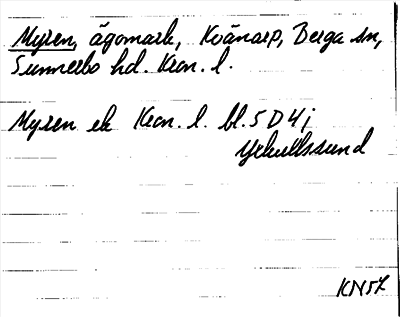 Myren, ägomark, Kvänarp, Berga sn,
Sunnerbo hd. Kron. l.
Myren ek Kron. l. bl. 5 D 4 j
KN57